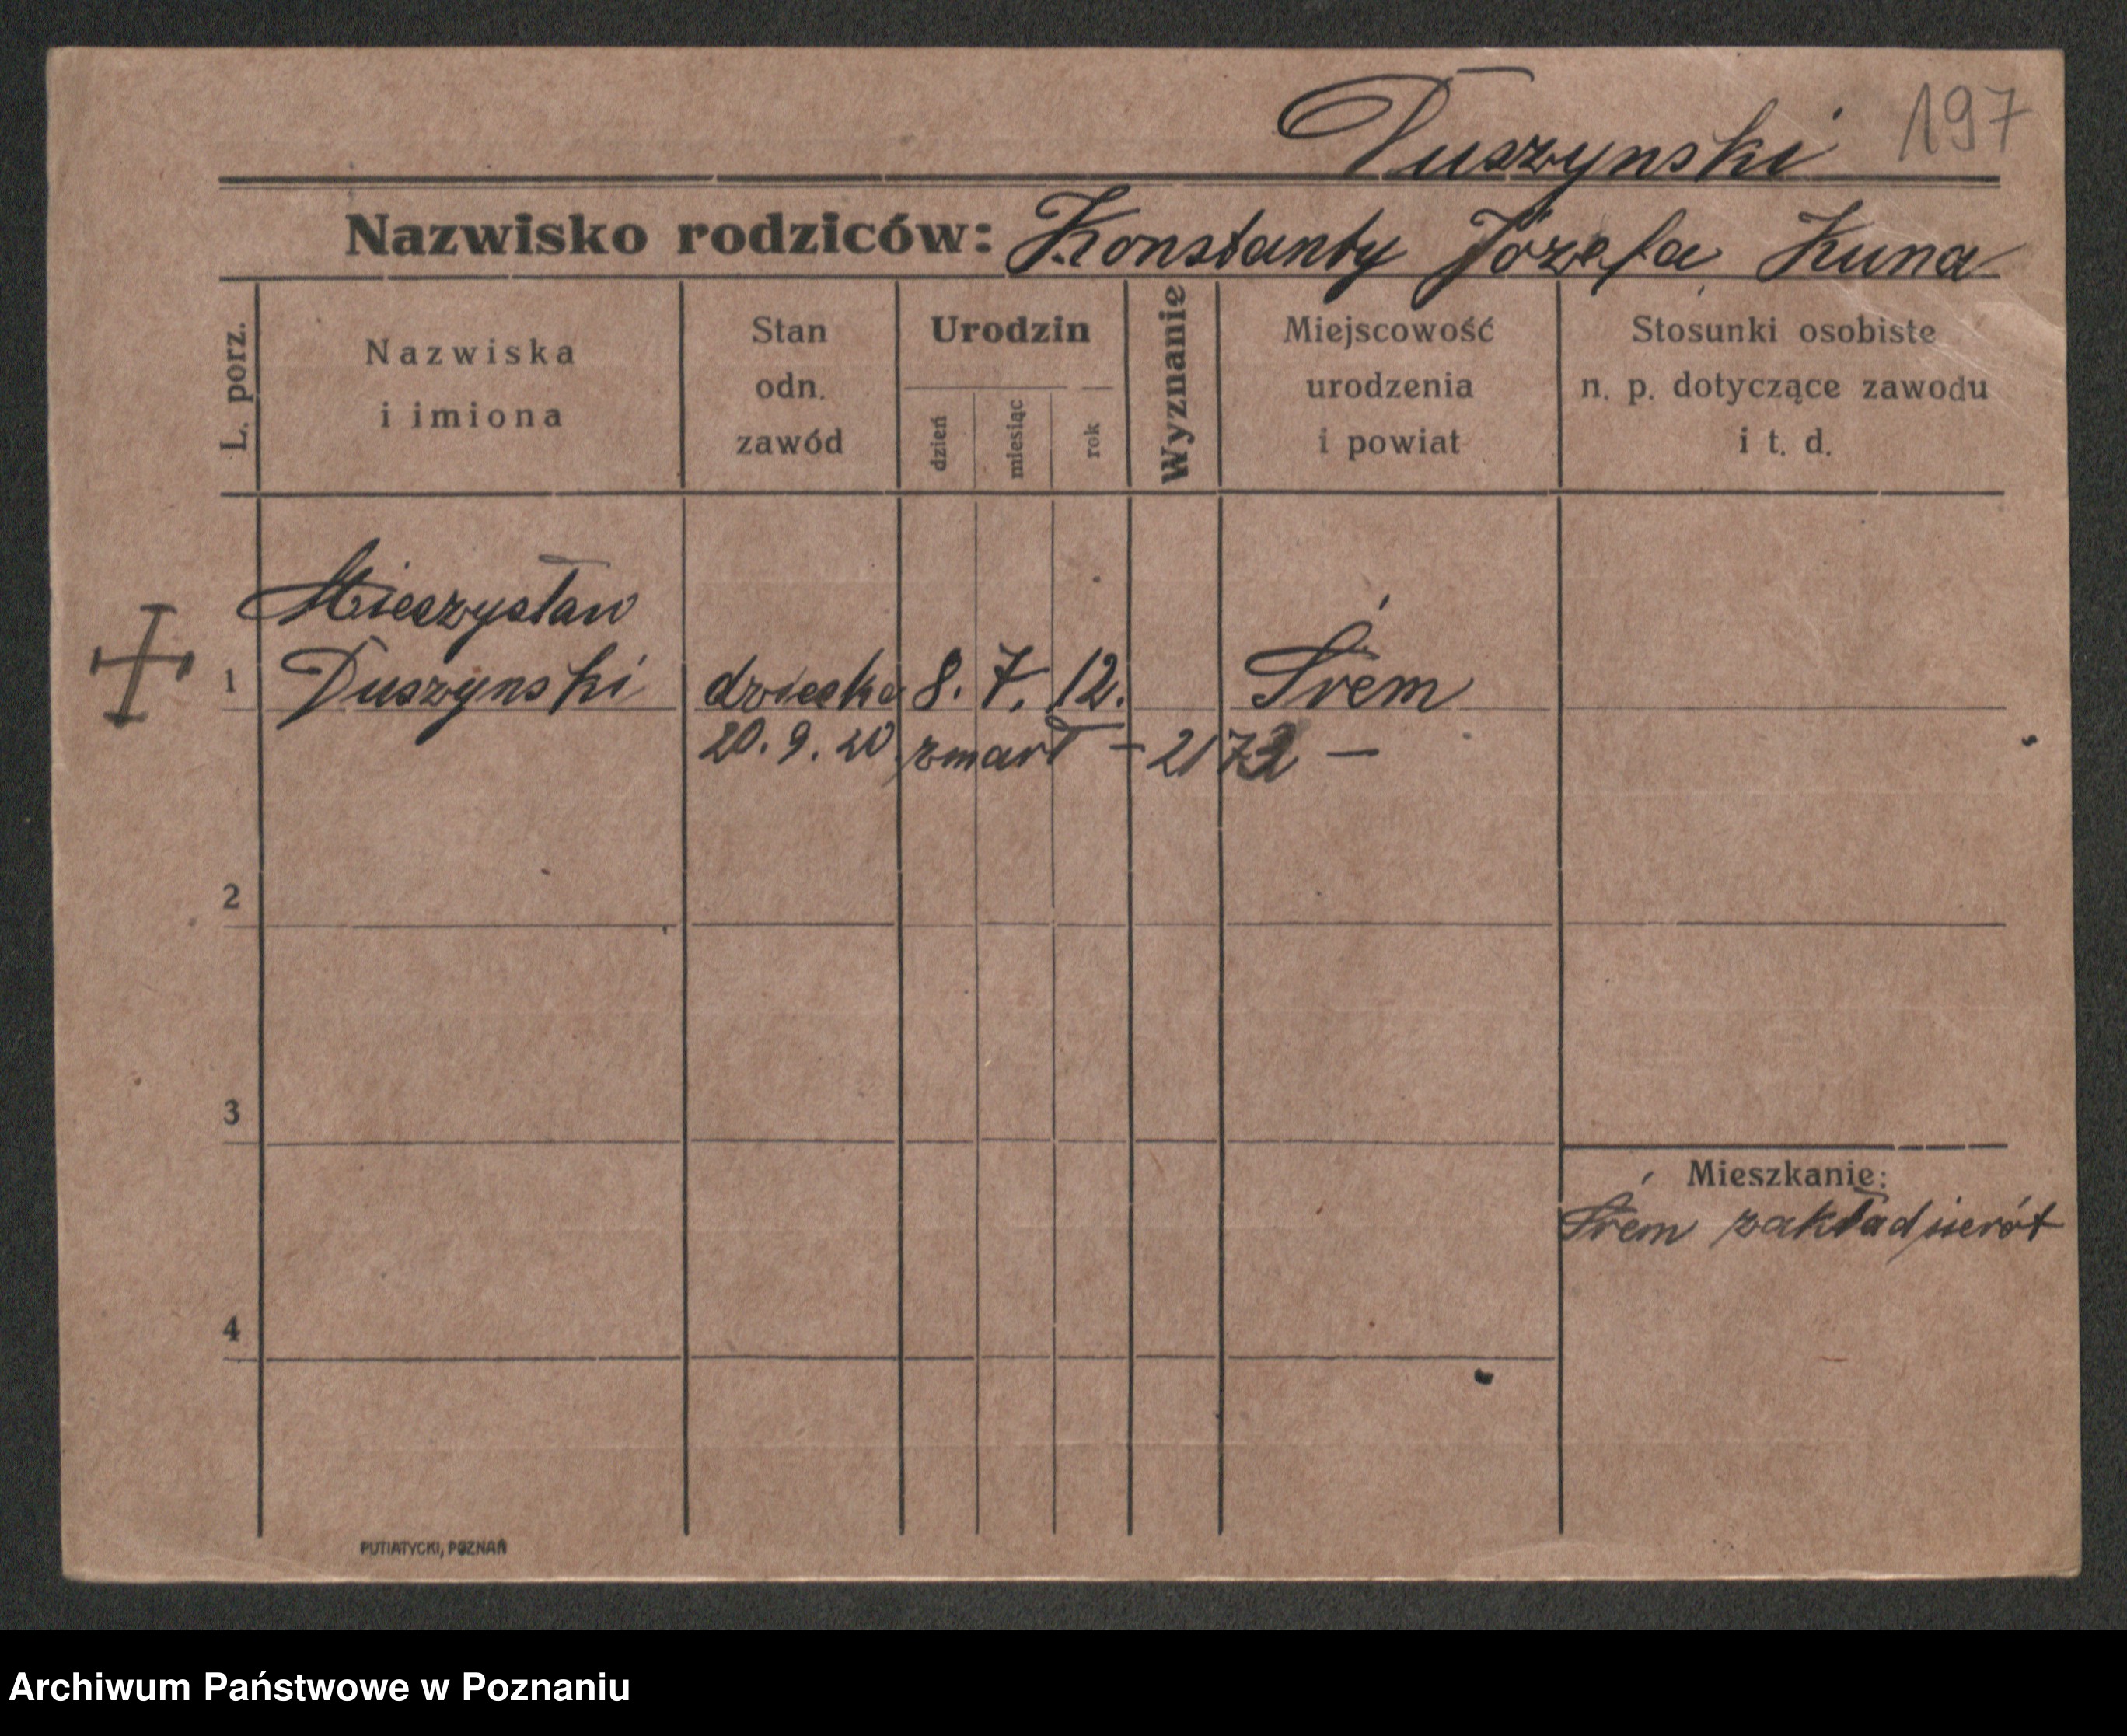 Duszynski 197
Nazwisko rodziców: Konstanty Józefa Kuna
L. porz.
Nazwiska
i imiona
Stan
odn.
zawód
Urodzin
dzień
miesiąc
rok
Wyznanie
Miejscowość
urodzenia
i powiat
Stosunki osobiste
n. p. dotyczące zawodu
i t. d.
Mieczysław
1 Duszynski dziecko 8. 7. 12. Śrem
20. 9. 20 zmarł
2
3
Mieszkanie:
Śrem zakład sierót
4
PUTIATYCKI, POZNAŃ
Archiwum Państwowe w Poznaniu